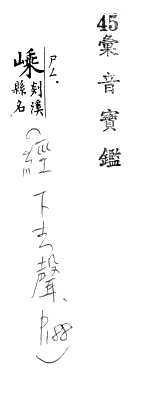 45
彙音寶鑑
嵊
ㄕㄥˊ
剡溪
縣名
(經下去聲、P188)